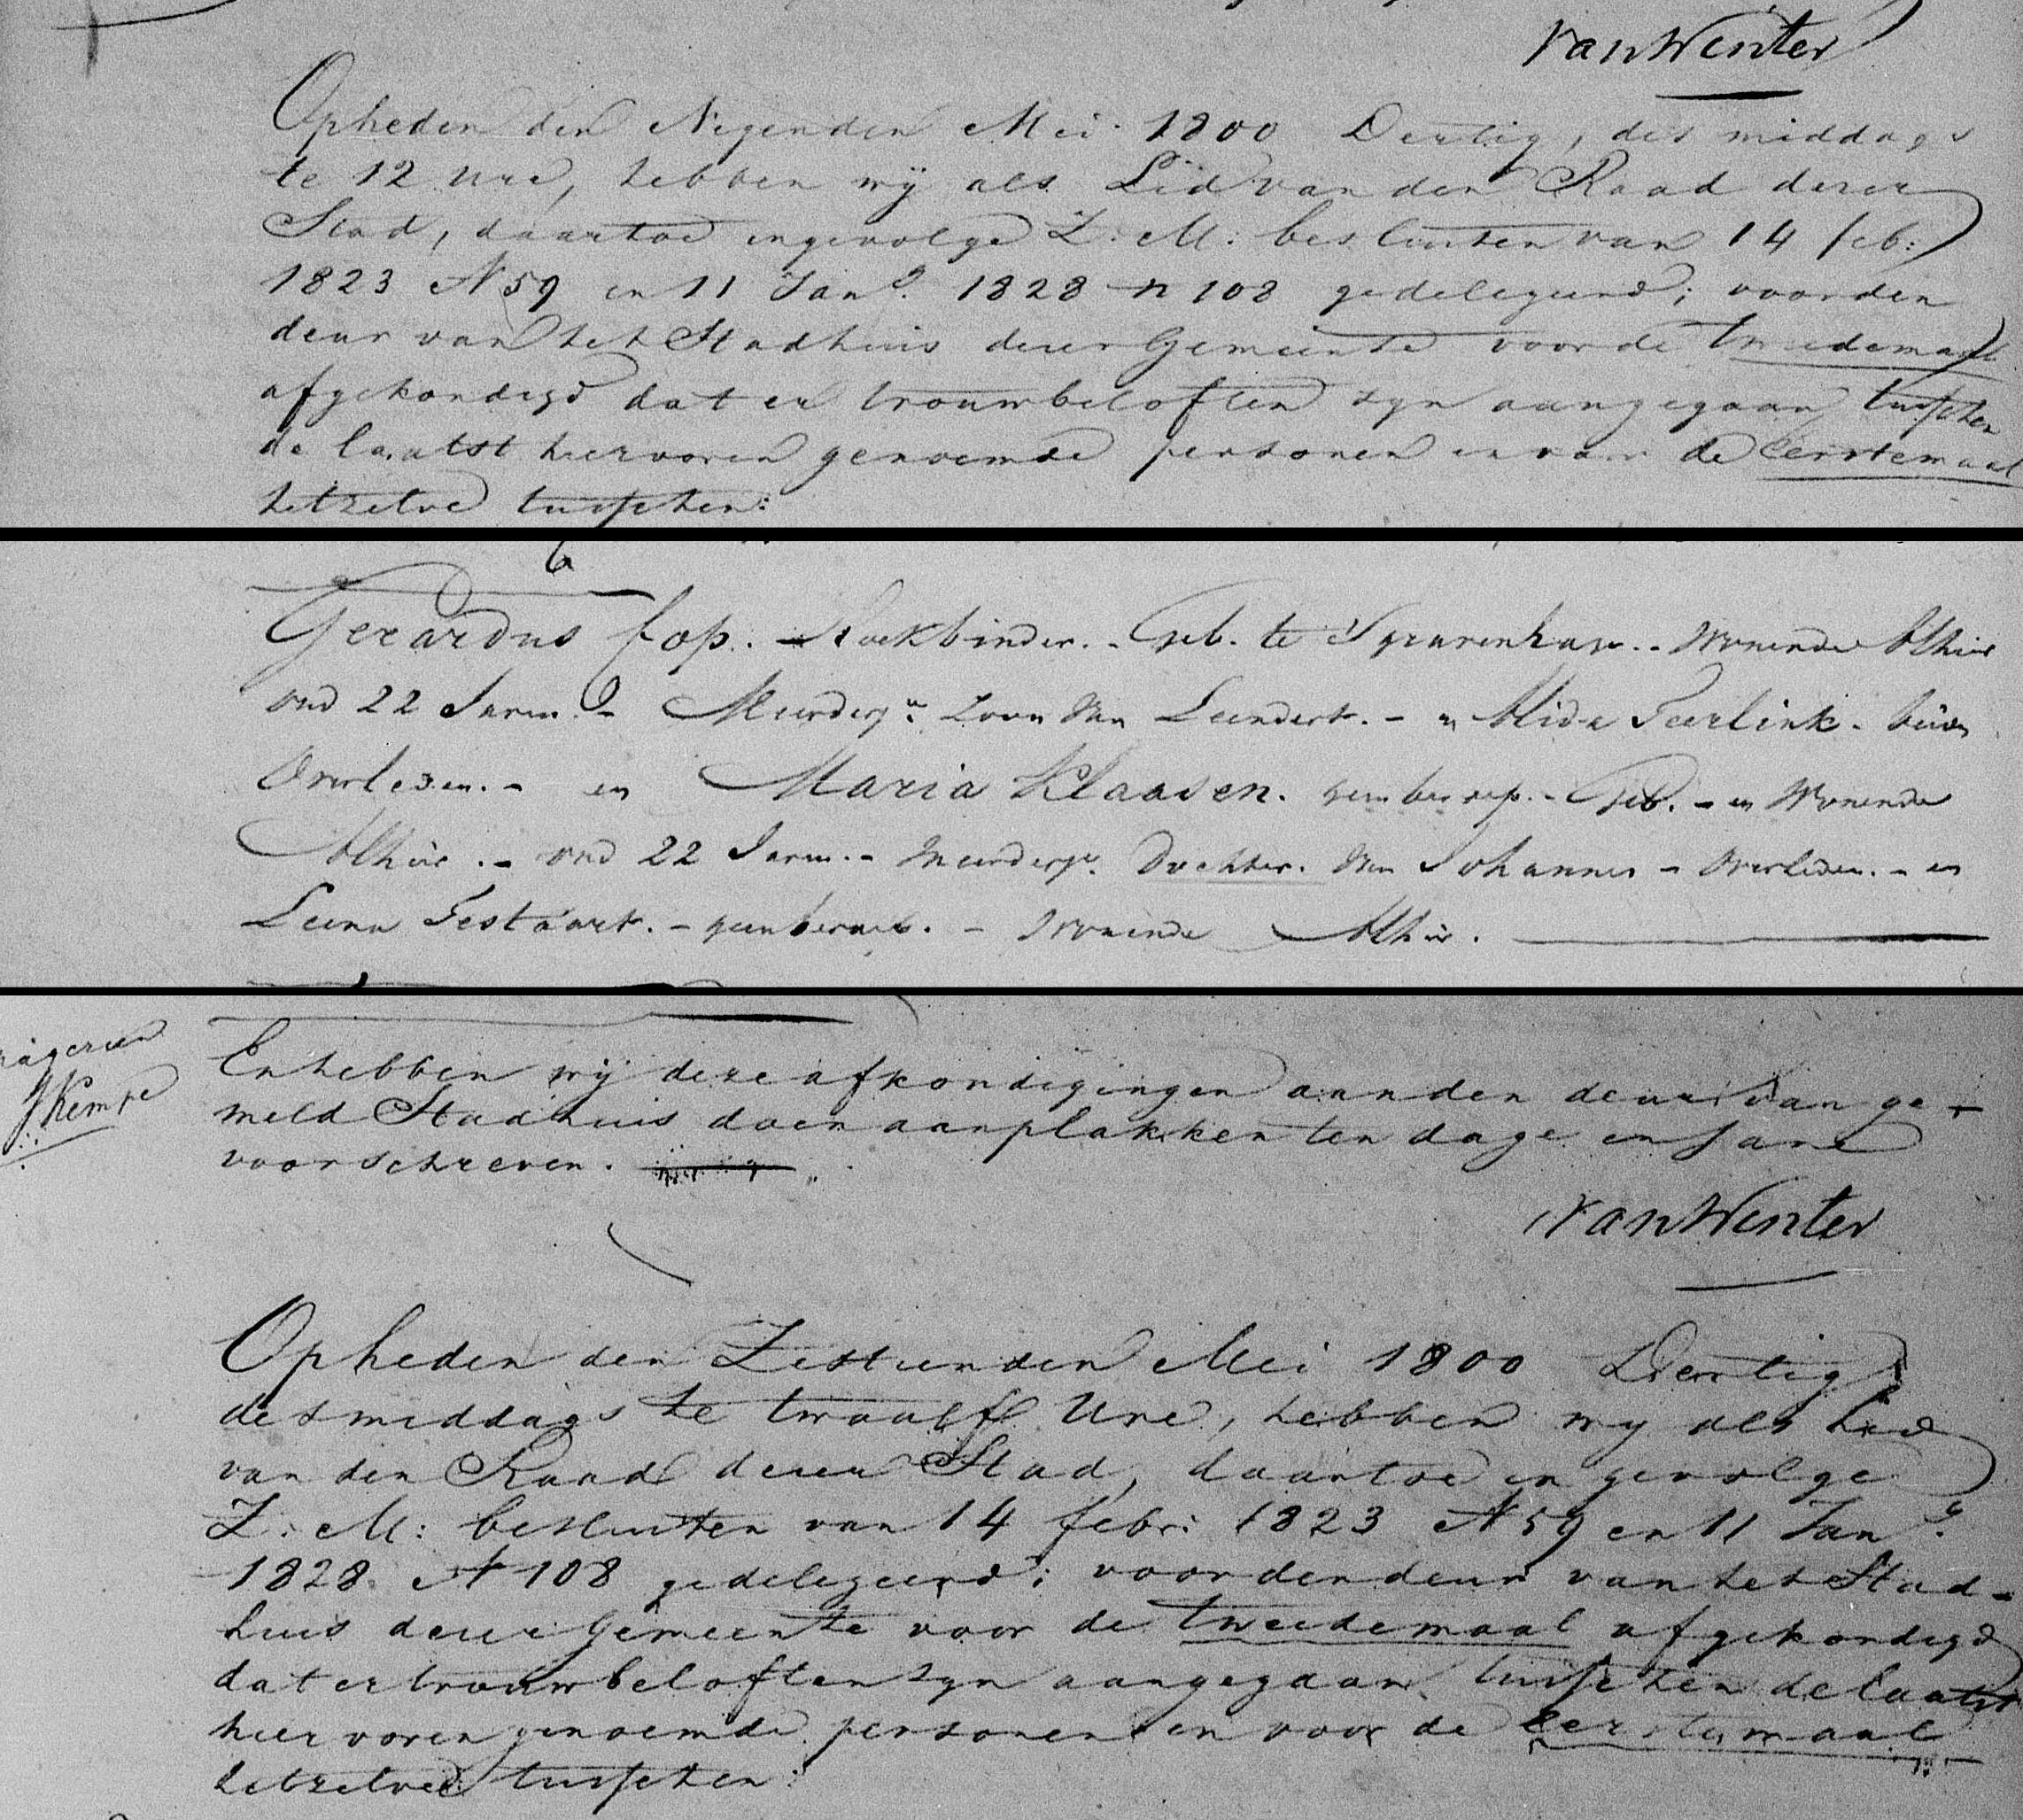 van Winter
Opheden den Negenden Mei 1800 Dertig, des middags
te 12 Ure, hebben wij als Lid van den Raad dezer
Stad, daartoe ingevolge Z: M: besluiten van 14 feb:
1823 N 59 en 11 Jan. 1828 n 108 gedelegeerd; voor den
deur van het Stadhuis dezer Gemeente voor de tweedemaal
afgekondigd dat er trouwbeloften zyn aangegaan tusschen
de laatst hiervoren genoemde personen en voor de eerstemaal
hetzelve tusschen:
6
Gerardus Cop. - Boekbinder. - Geb. te 's Gravenhage. - Wonende Alhier
oud 22 Jaren. - Meerderj. Zoon van Leendert. - en Alida Teerlink. beiden
Overleden. - en Maria Klaasen. geen beroep. - Geb. - en Wonende
Alhier. - oud 22 Jaren. - Meerderj. Dochter. van Johannes - Overleden. - en
Leena Testaart. - geen beroep. - Wonende Alhier.
Kempe
En hebben wij deze afkondigingen aan den deur van ge-
meld Stadhuis doen aanplakken ten dage en Jare
voorschreven.
van Winter
Opheden den Zestienden Mei 1800 Dertig
des middags te twaalf Ure, hebben wy als Lid
van den Raad dezer Stad, daartoe in gevolge
Z: M: besluiten van 14 febr: 1823 N 59 en 11 Jan.
1828 N 108 gedelegeerd; voor den deur van het Stad-
huis dezer Gemeente voor de tweedemaal afgekondigd
dat er trouwbeloften zyn aangegaan tusschen de laatst
hier voren genoemde personen en voor de eerstemaal
hetzelve tusschen: